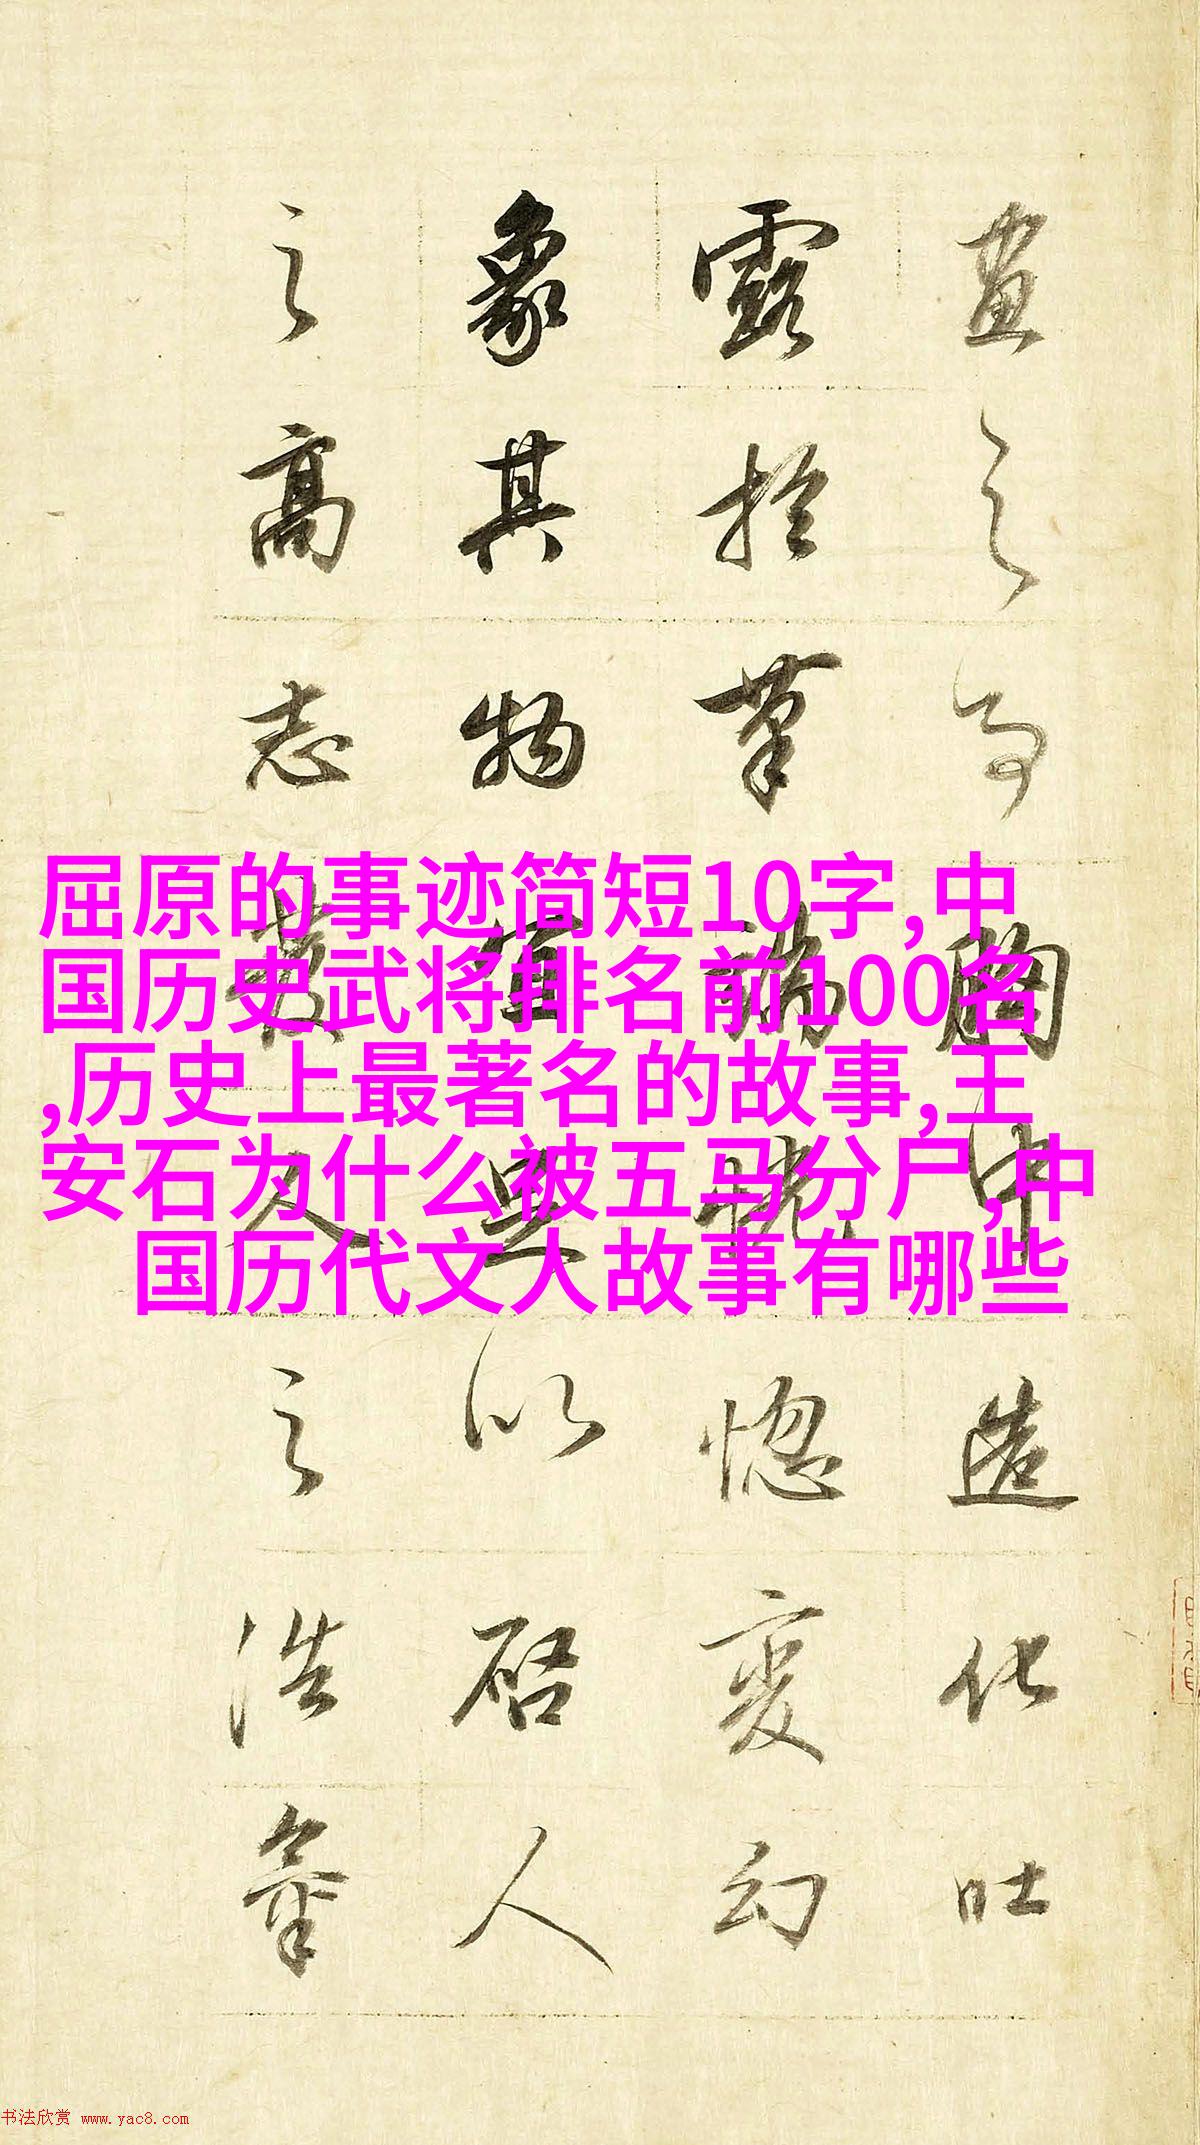 畫之胸中造化吐
露於筆端恍惚變幻
象其物宜以啓人
之高志發人之浩氣
屈原的事迹简短10字,中
国历史武将排名前100名
,历史上最著名的故事,王
安石为什么被五马分尸,中
国历代文人故事有哪些
书法欣赏 www.yac8.com